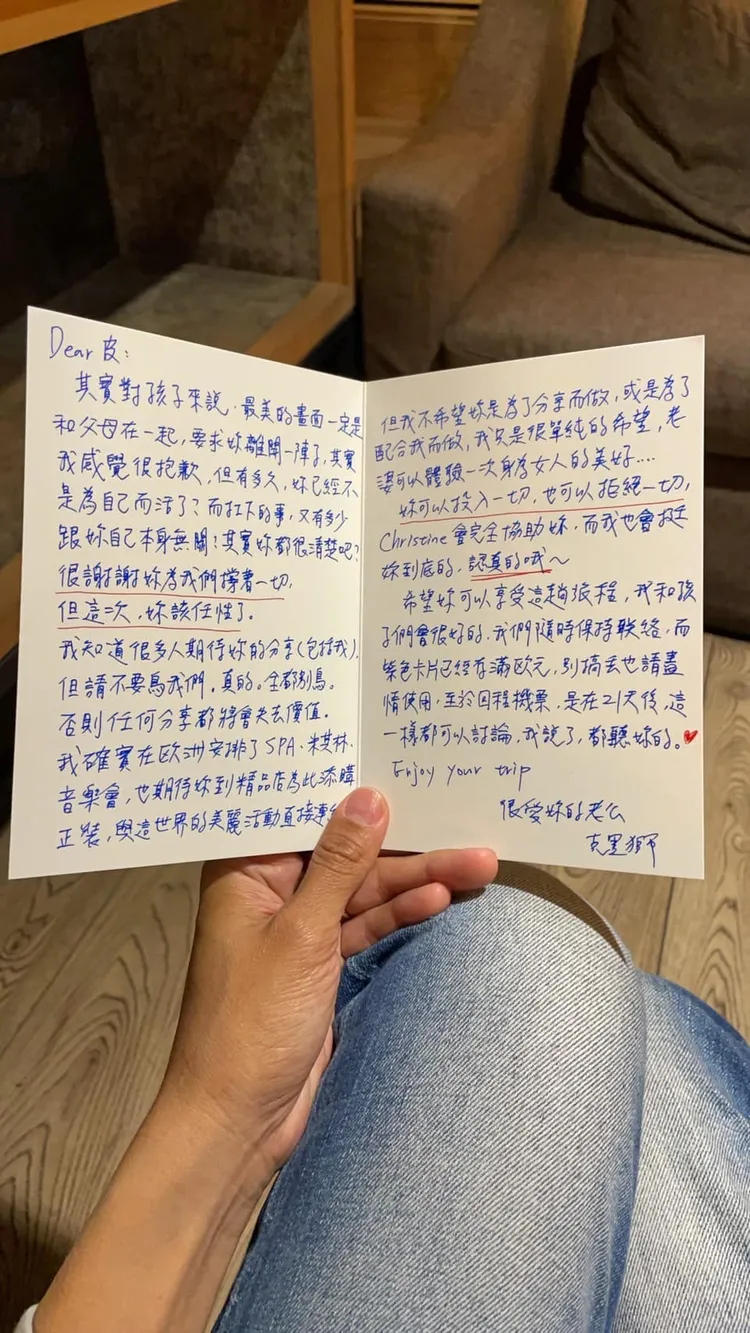 Dear 皮：
其實對孩子來說，最美的畫面一定是
和父母在一起，要求妳離開一陣子，其實
我感覺很抱歉，但有多久，妳已經不
是為自己而活了？而扛下的事，又有多少
跟妳自己本身無關！其實妳都很清楚吧？
很謝謝妳為我們撐著一切，
但這一次，妳該任性了。
我知道很多人期待妳的分享(包括我)，
但請不要鳥我們，真的。全都別鳥。
否則任何分享都將會失去價值。
我確實在歐洲安排了SPA、米其林、
音樂會，也期待妳到精品店為此添購
正裝，與這世界的美麗活動直接連
但我不希望妳是為了分享而做，或是為了
配合我而做，我只是很單純的希望，老
婆可以體驗一次身為女人的美好....
妳可以投入一切，也可以拒絕一切，
Christine會完全協助妳，而我也會挺
妳到底的，認真的哦～
希望妳可以享受這趟旅程，我和孩
子們會很好的，我們隨時保持聯絡，而
紫色卡片已經存滿歐元，別搞丟也請盡
情使用，至於回程機票，是在21天後，這
一樣都可以討論，我說了，都聽妳的。❤
Enjoy your trip
很愛妳的老公
克里獅